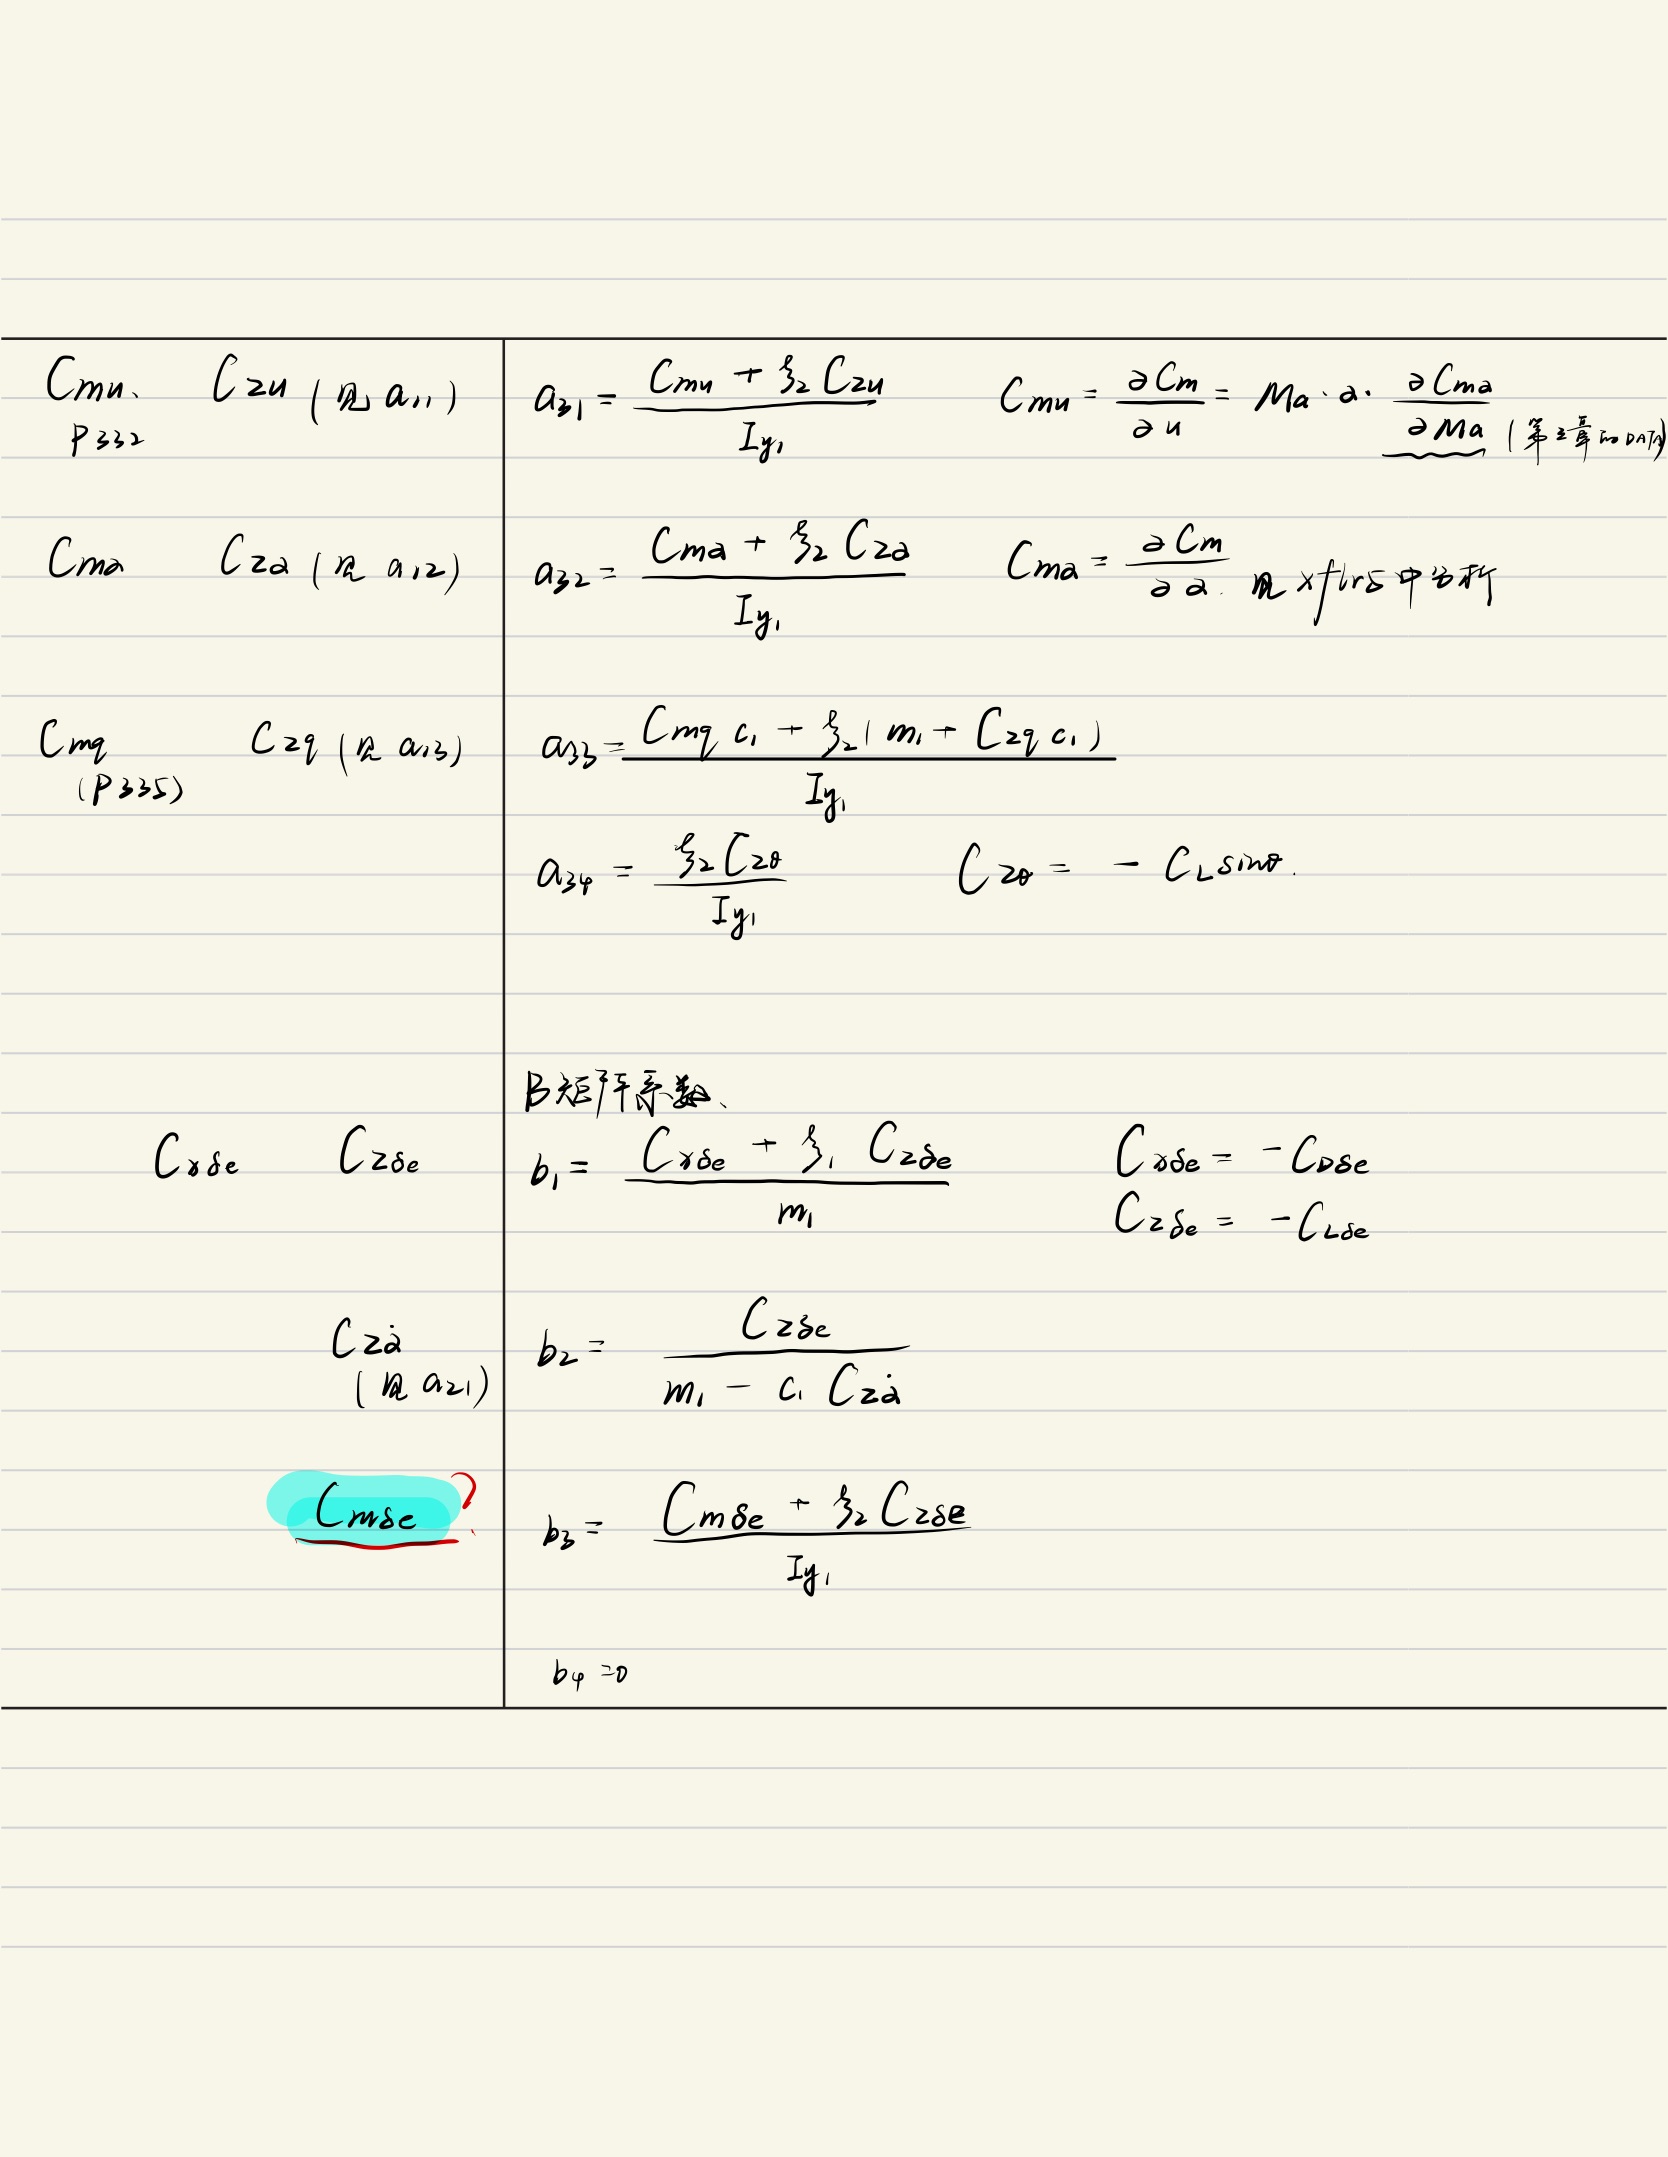 Cmu、 Czu (见 a₁₁) a₃₁ = (Cmu + ξ₂ Czu) / Iy₁ Cmu = ∂Cm/∂u = Ma · a · ∂Cma/∂Ma
P332 (第三章的DATA)
Cma Cza (见 a₁₂) a₃₂ = (Cma + ξ₂ Cza) / Iy₁ Cma = ∂Cm/∂a. 见 xflr5 中分析
Cmq Czq (见 a₁₃) a₃₃ = (Cmq c₁ + ξ₂ (m₁ + Czq c₁)) / Iy₁
(P335)
a₃₄ = ξ₂ Czθ / Iy₁ Czθ = - CL sinθ.
B矩阵系数、
Cxδe Czδe b₁ = (Cxδe + ξ₁ Czδe) / m₁ Cxδe = -CDδe
Czδe = -CLδe
Czȧ b₂ = Czδe / (m₁ - c₁ Czȧ)
(见 a₂₁)
Cmδe ? b₃ = (Cmδe + ξ₂ Czδe) / Iy₁
b₄ = 0